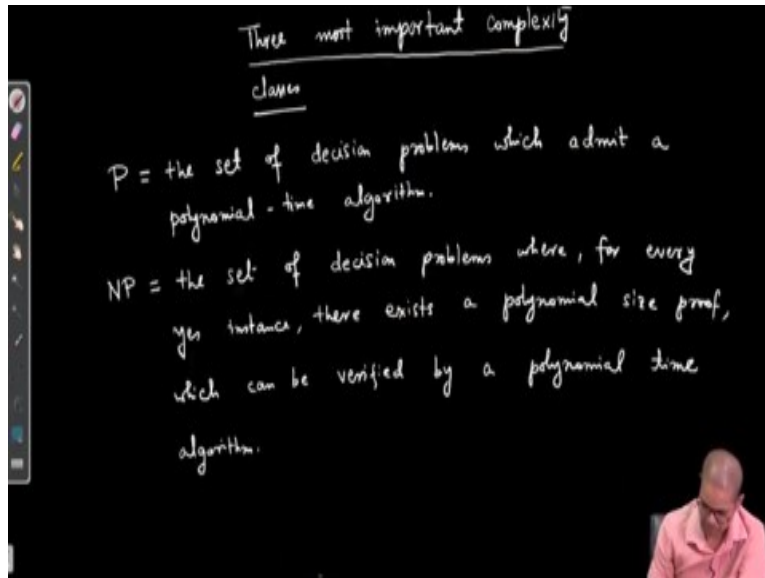 Three most important complexity
classes
P = the set of decision problems which admit a
polynomial-time algorithm.
NP = the set of decision problems where, for every
yes instance, there exists a polynomial size proof,
which can be verified by a polynomial time
algorithm.